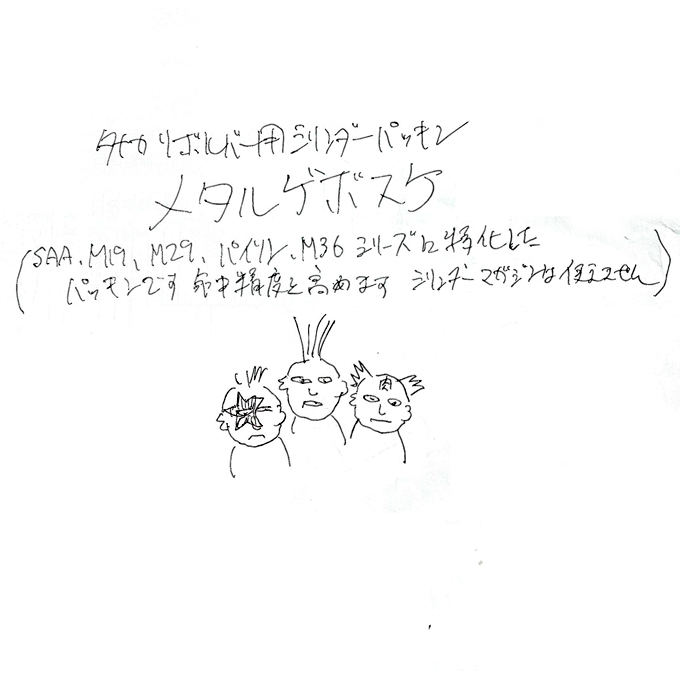 タナカリボルバー用シリンダーパッキン
メタルゲボスケ
(SAA、M19、M29、パイソン、M36シリーズに特化した
パッキンです 命中精度を高めます シリンダーマガジンは使えません)
肉